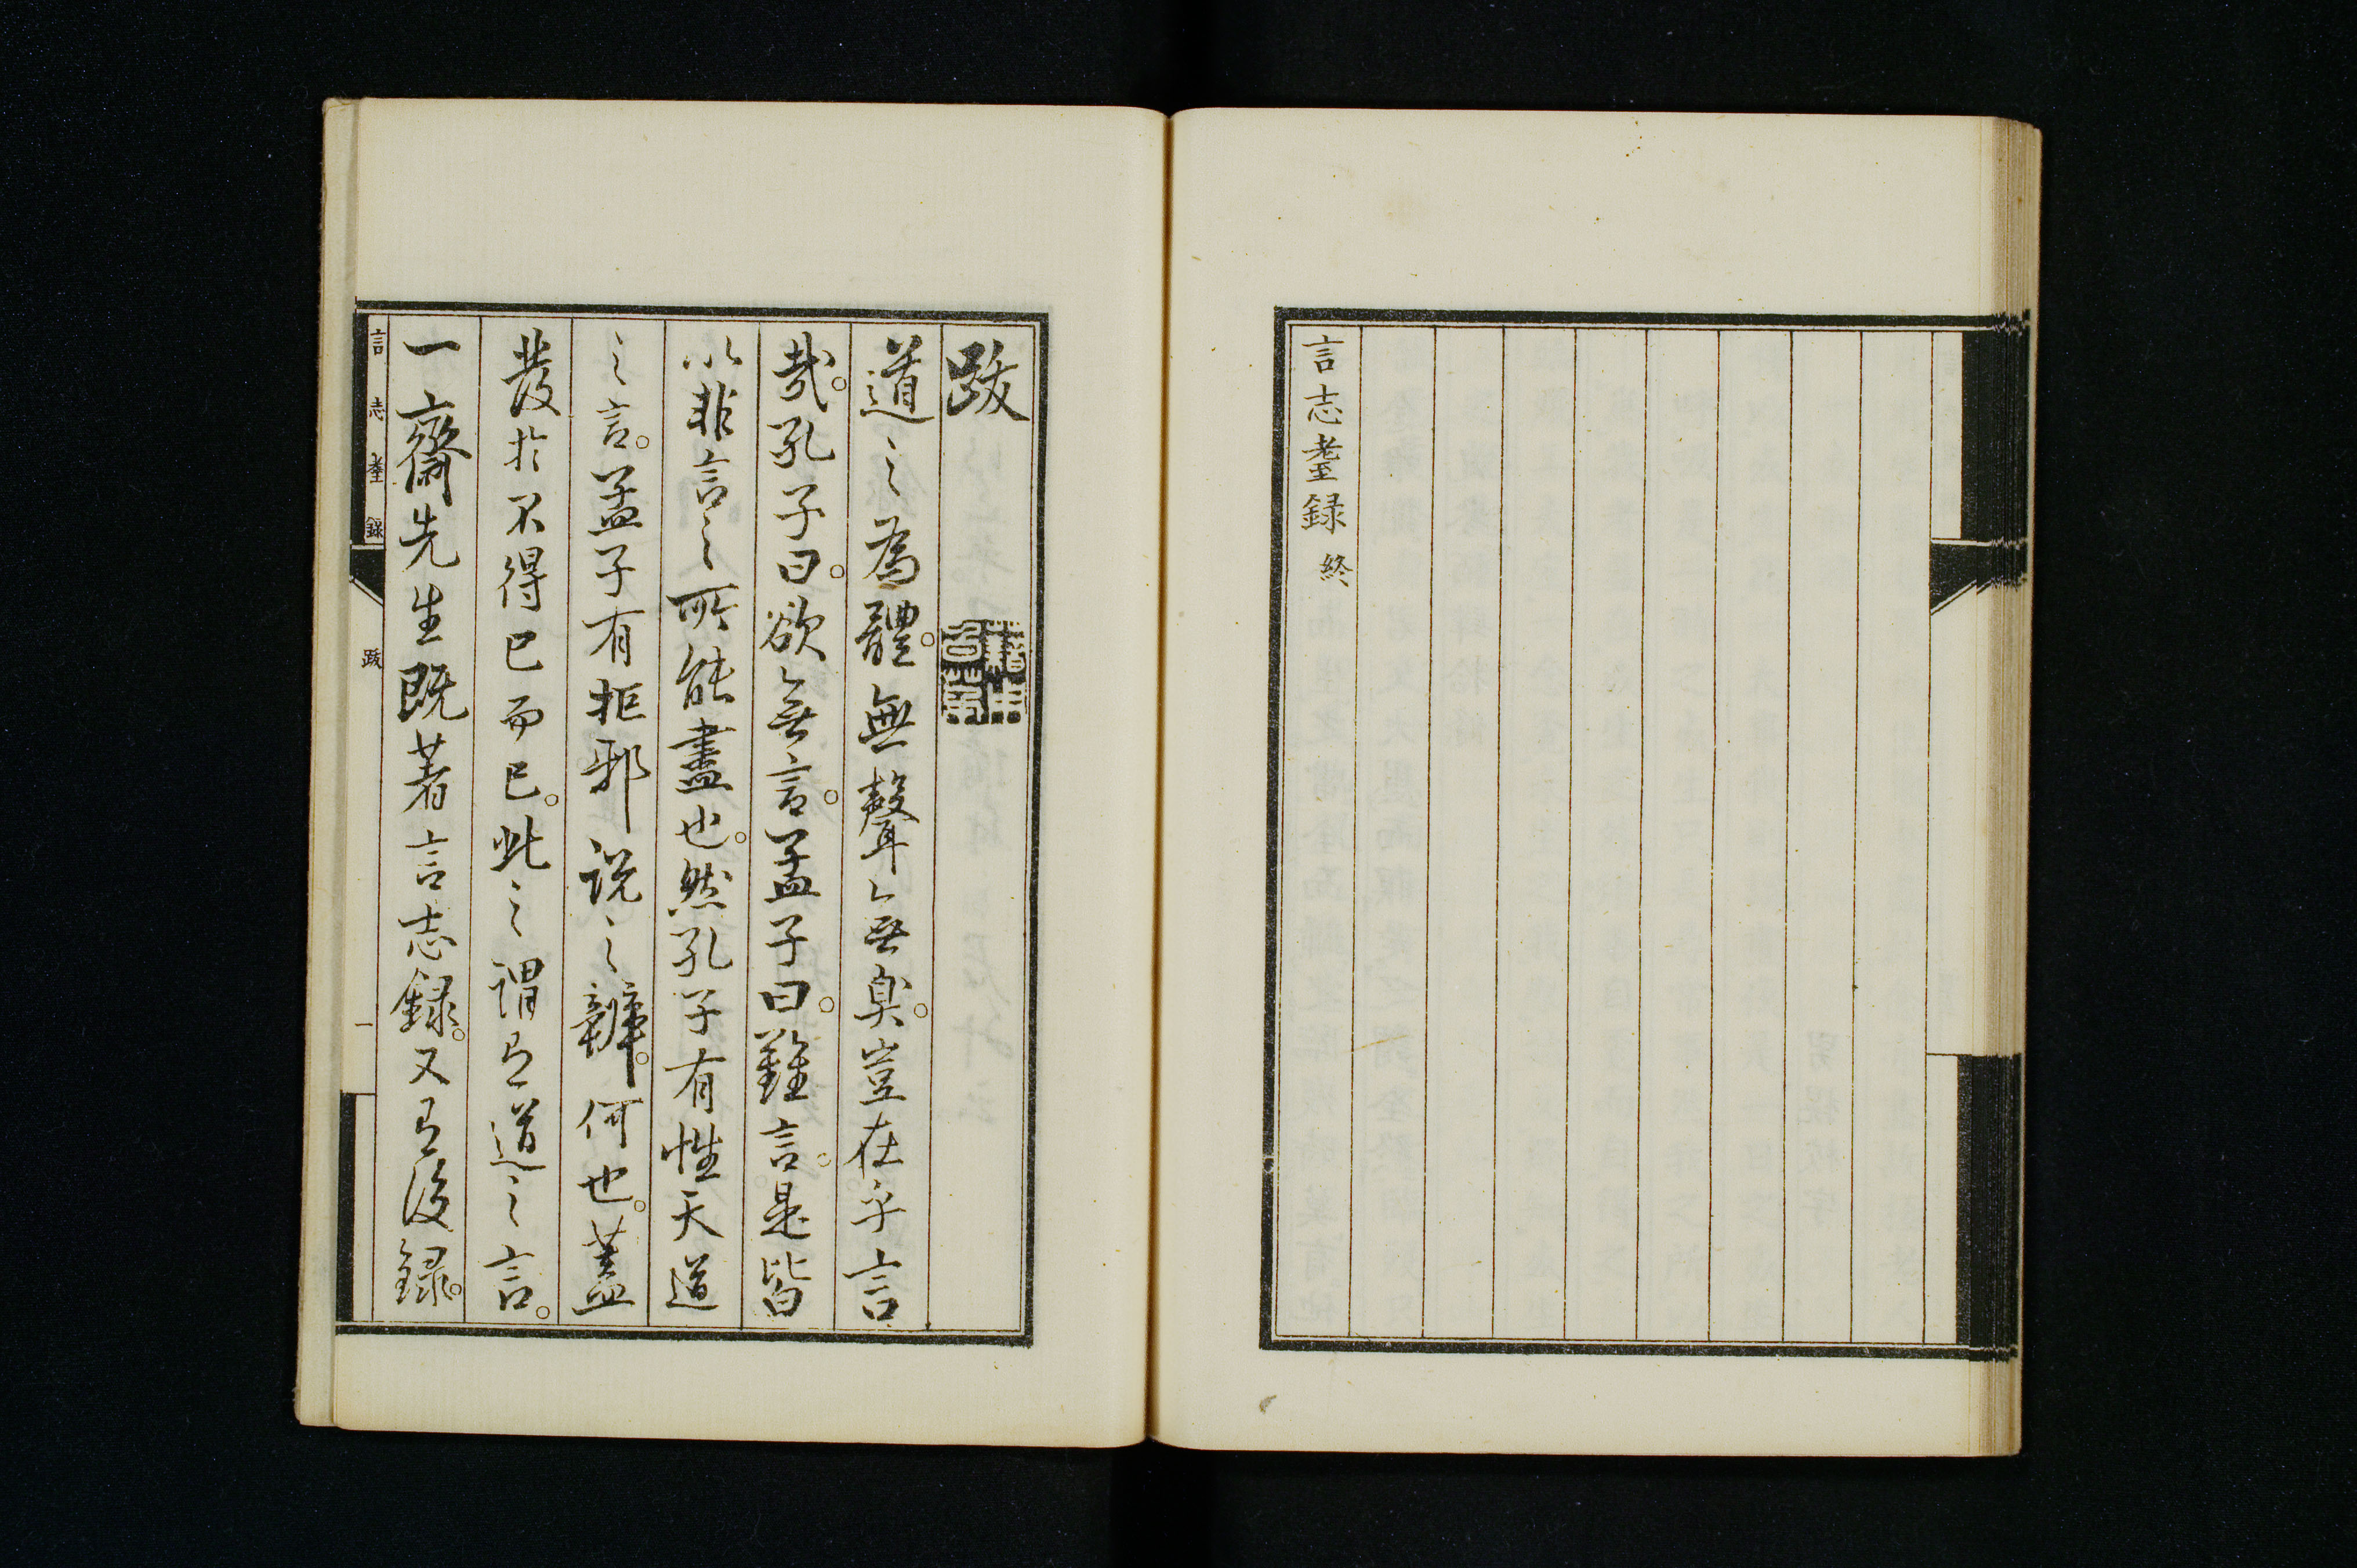 言志耋録 終
跋
道之為體。無聲無臭。豈在乎言
哉。孔子曰。欲無言。孟子曰。難言。是皆
以非言之所能盡也。然孔子有性天道
之言。孟子有拒邪説之辨。何也。蓋
發於不得已而已。此之謂有道之言。
一齋先生既著言志録。又有後録。
言志耋録 跋 一